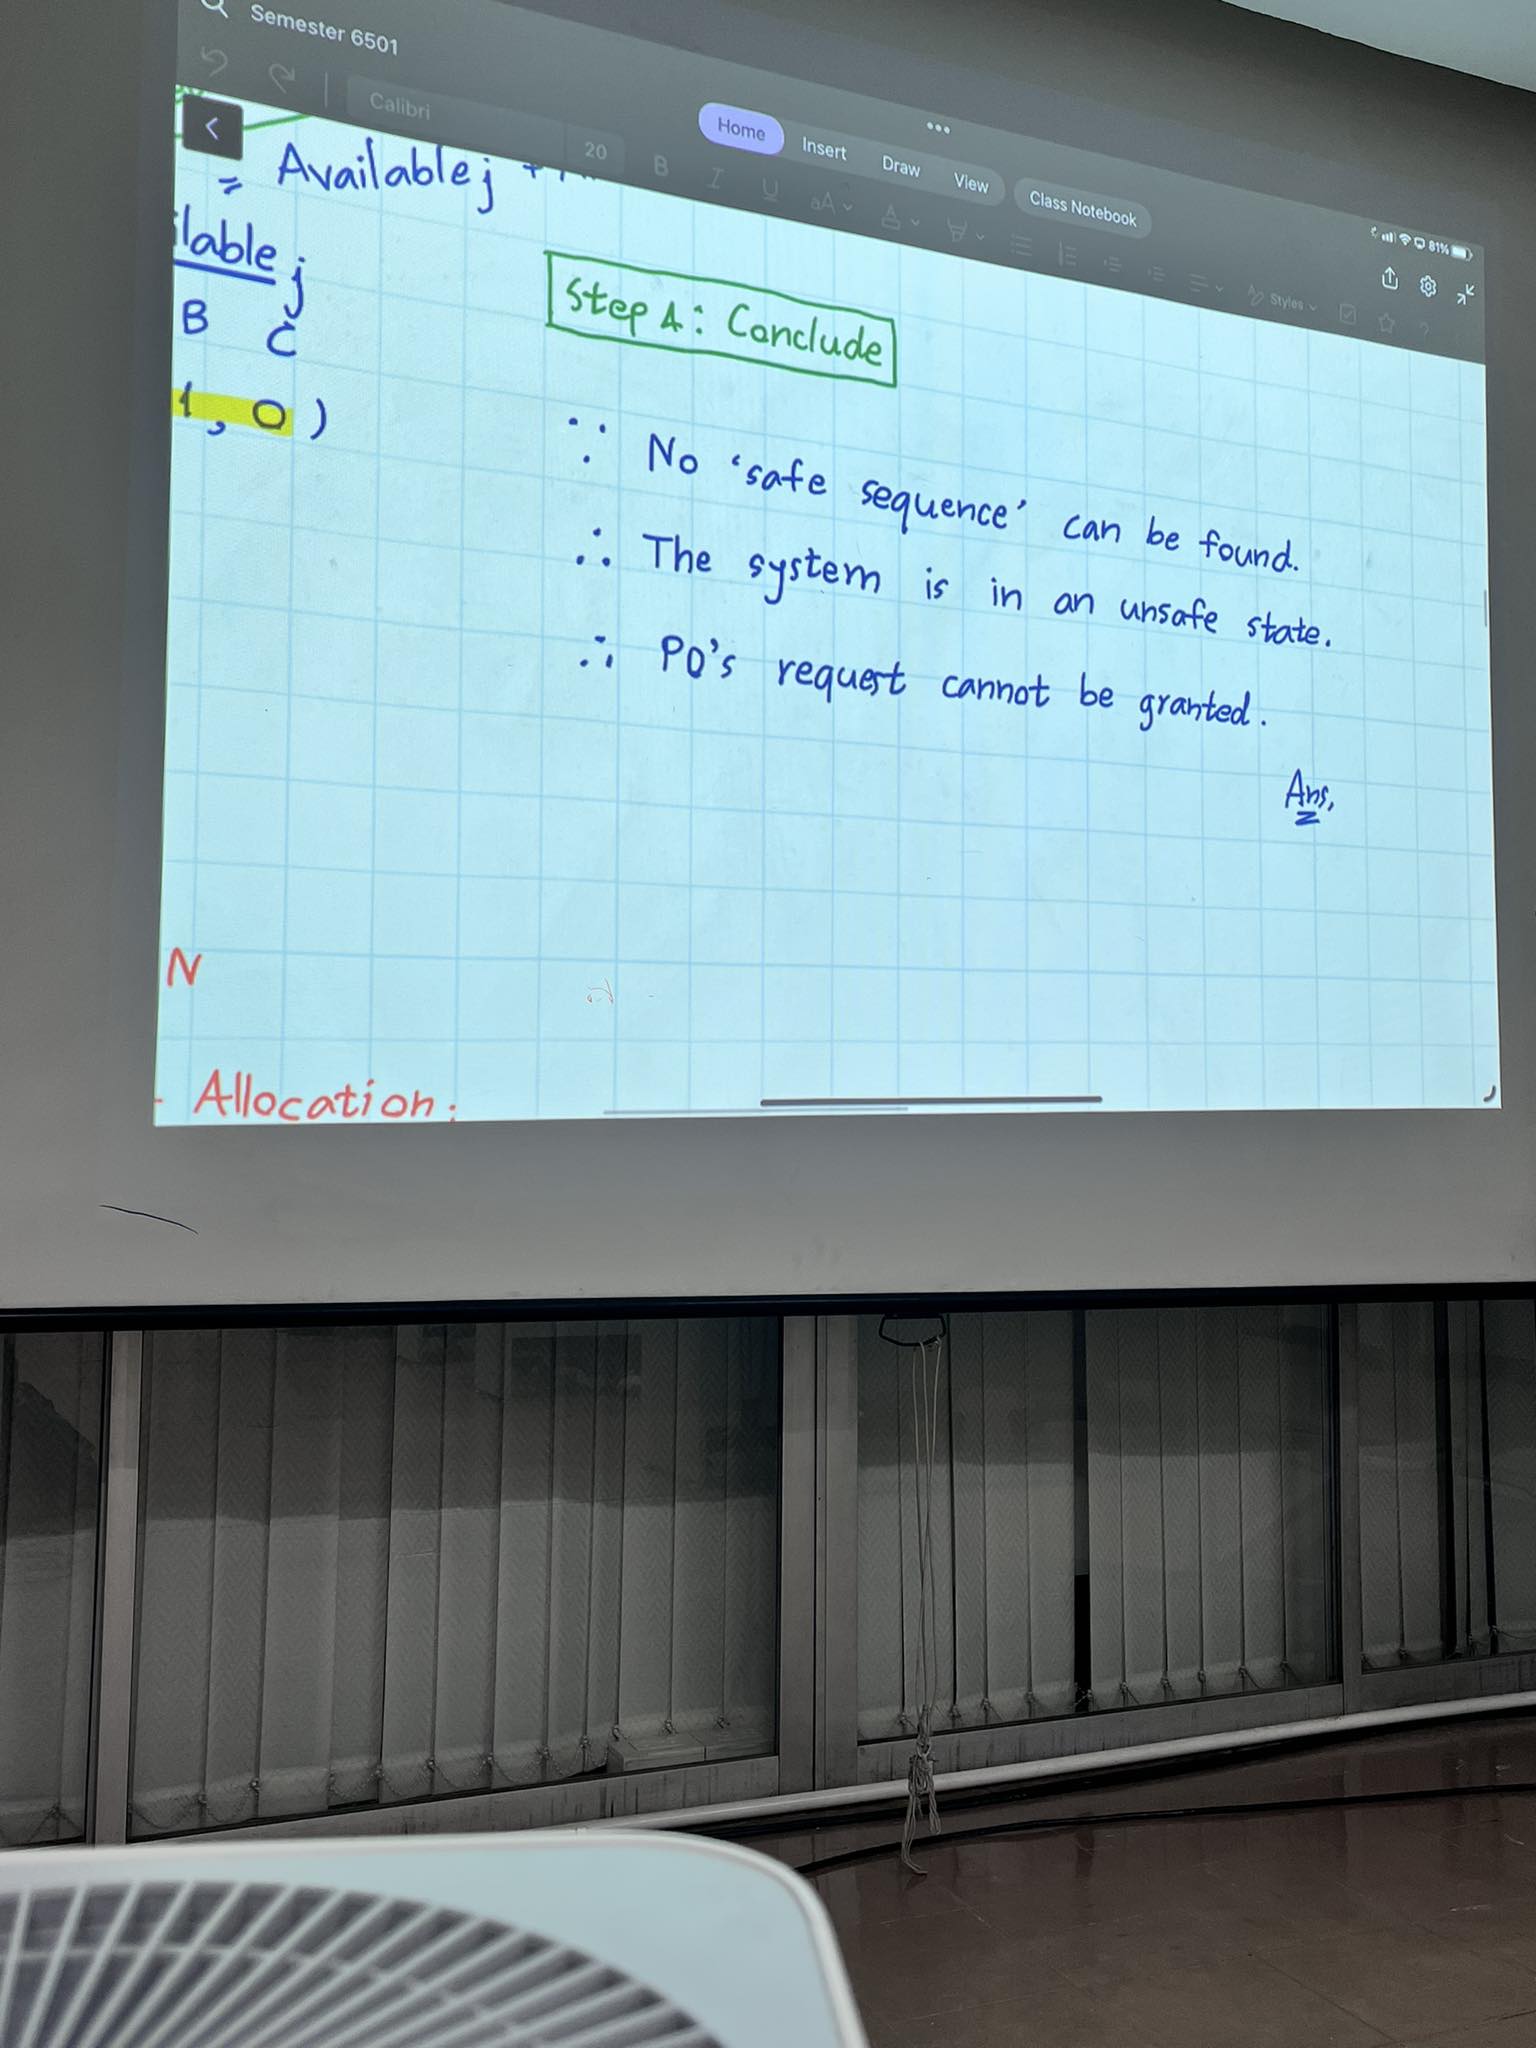 Semester 6501
Calibri
20
Home
Insert
Draw
View
Class Notebook
B
I
U
aA
A
Styles
81%
?
= Availablej +
ilable j
B C
1, 0 )
Step 4: Conclude
∵ No 'safe sequence' can be found.
∴ The system is in an unsafe state.
∴ P0's request cannot be granted.
Ans,
N
- Allocation: